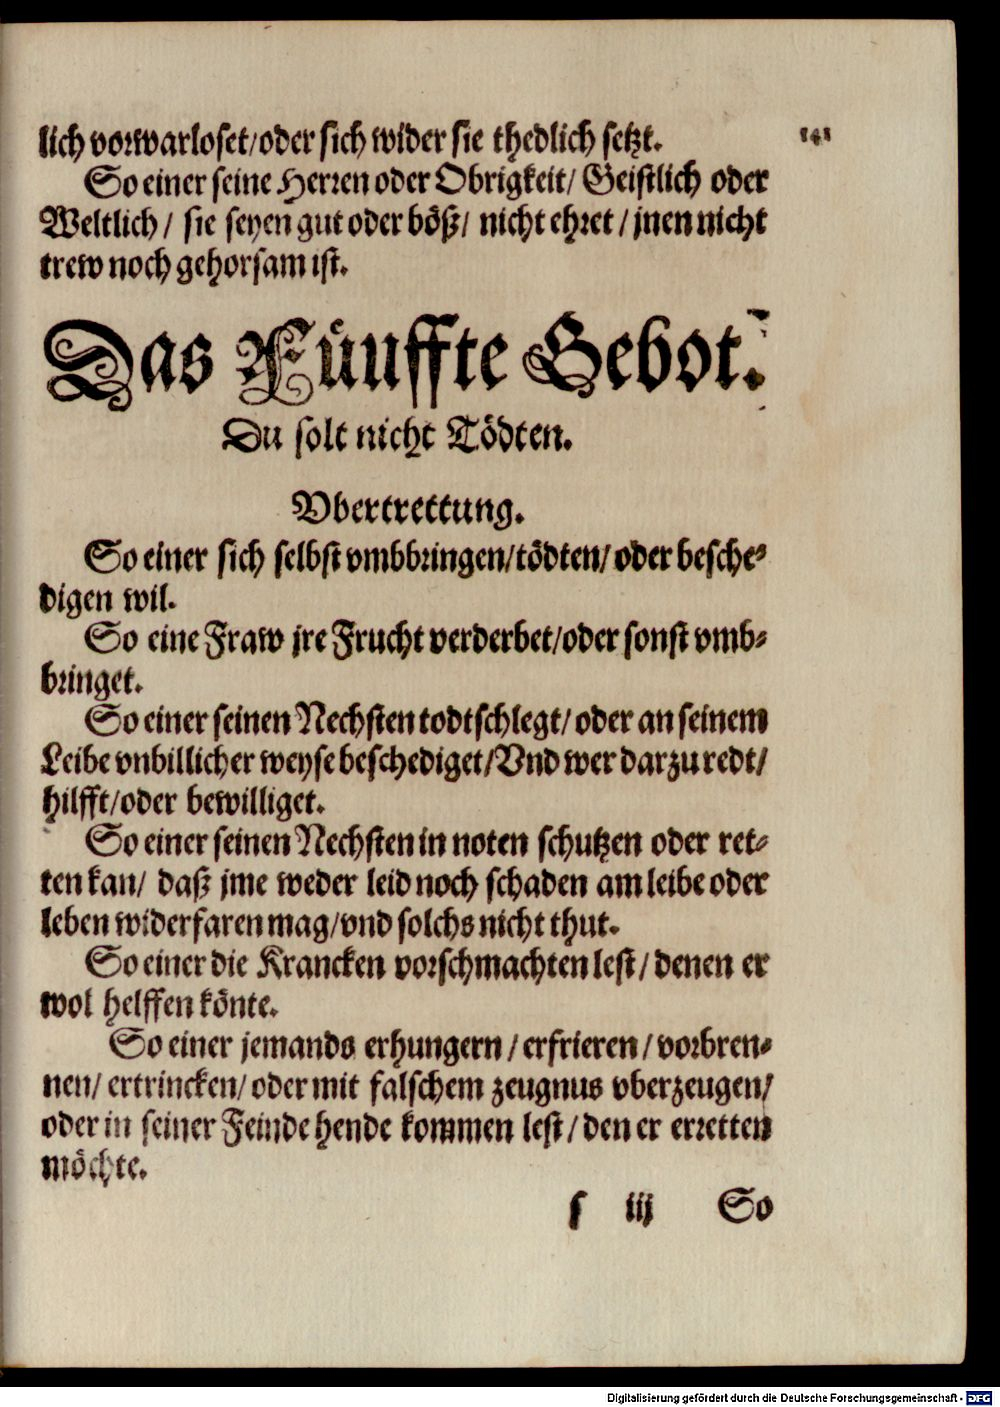 lich vorwarloset/oder sich wider sie thedlich setzt.
So einer seine Herren oder Obrigkeit/ Geistlich oder
Weltlich/ sie seyen gut oder böß/ nicht ehret/ jnen nicht
trew noch gehorsam ist.
Das Fůnffte Gebot.
Du solt nicht Tödten.
Vbertrettung.
So einer sich selbst vmbbringen/tödten/ oder besche-
digen wil.
So eine Fraw jre Frucht verderbet/oder sonst vmb-
bringet.
So einer seinen Nechsten todtschlegt/ oder an seinem
Leibe vnbillicher weyse beschediget/Vnd wer darzu redt/
hilfft/oder bewilliget.
So einer seinen Nechsten in noten schutzen oder ret-
ten kan/ daß jme weder leid noch schaden am leibe oder
leben widerfaren mag/vnd solchs nicht thut.
So einer die Krancken vorschmachten lest/ denen er
wol helffen könte.
So einer jemands erhungern/ erfrieren/ vorbren-
nen/ ertrincken/ oder mit falschem zeugnus vberzeugen/
oder in seiner Feinde hende kommen lest/ den er erretten
möchte.
f iij So
Digitalisierung gefördert durch die Deutsche Forschungsgemeinschaft - DFG